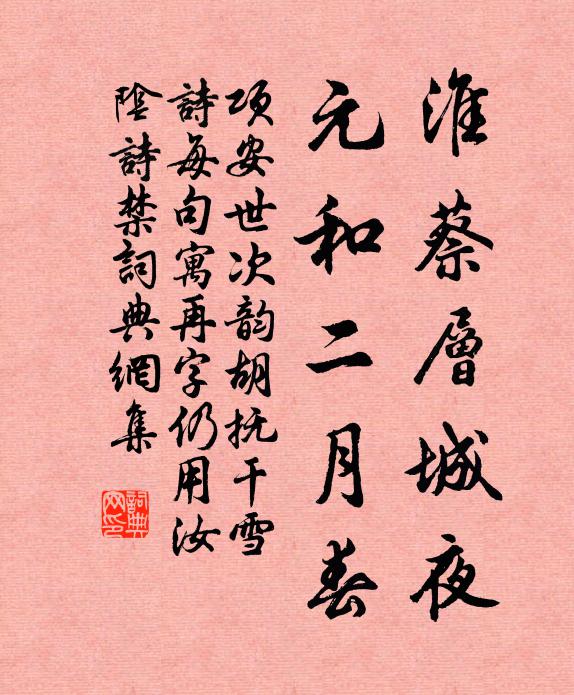 淮蔡層城夜
元和二月春
項安世次韵胡抚干雪
詩每句寓再字仍用汝
陰詩禁詞典網集
詞典網印